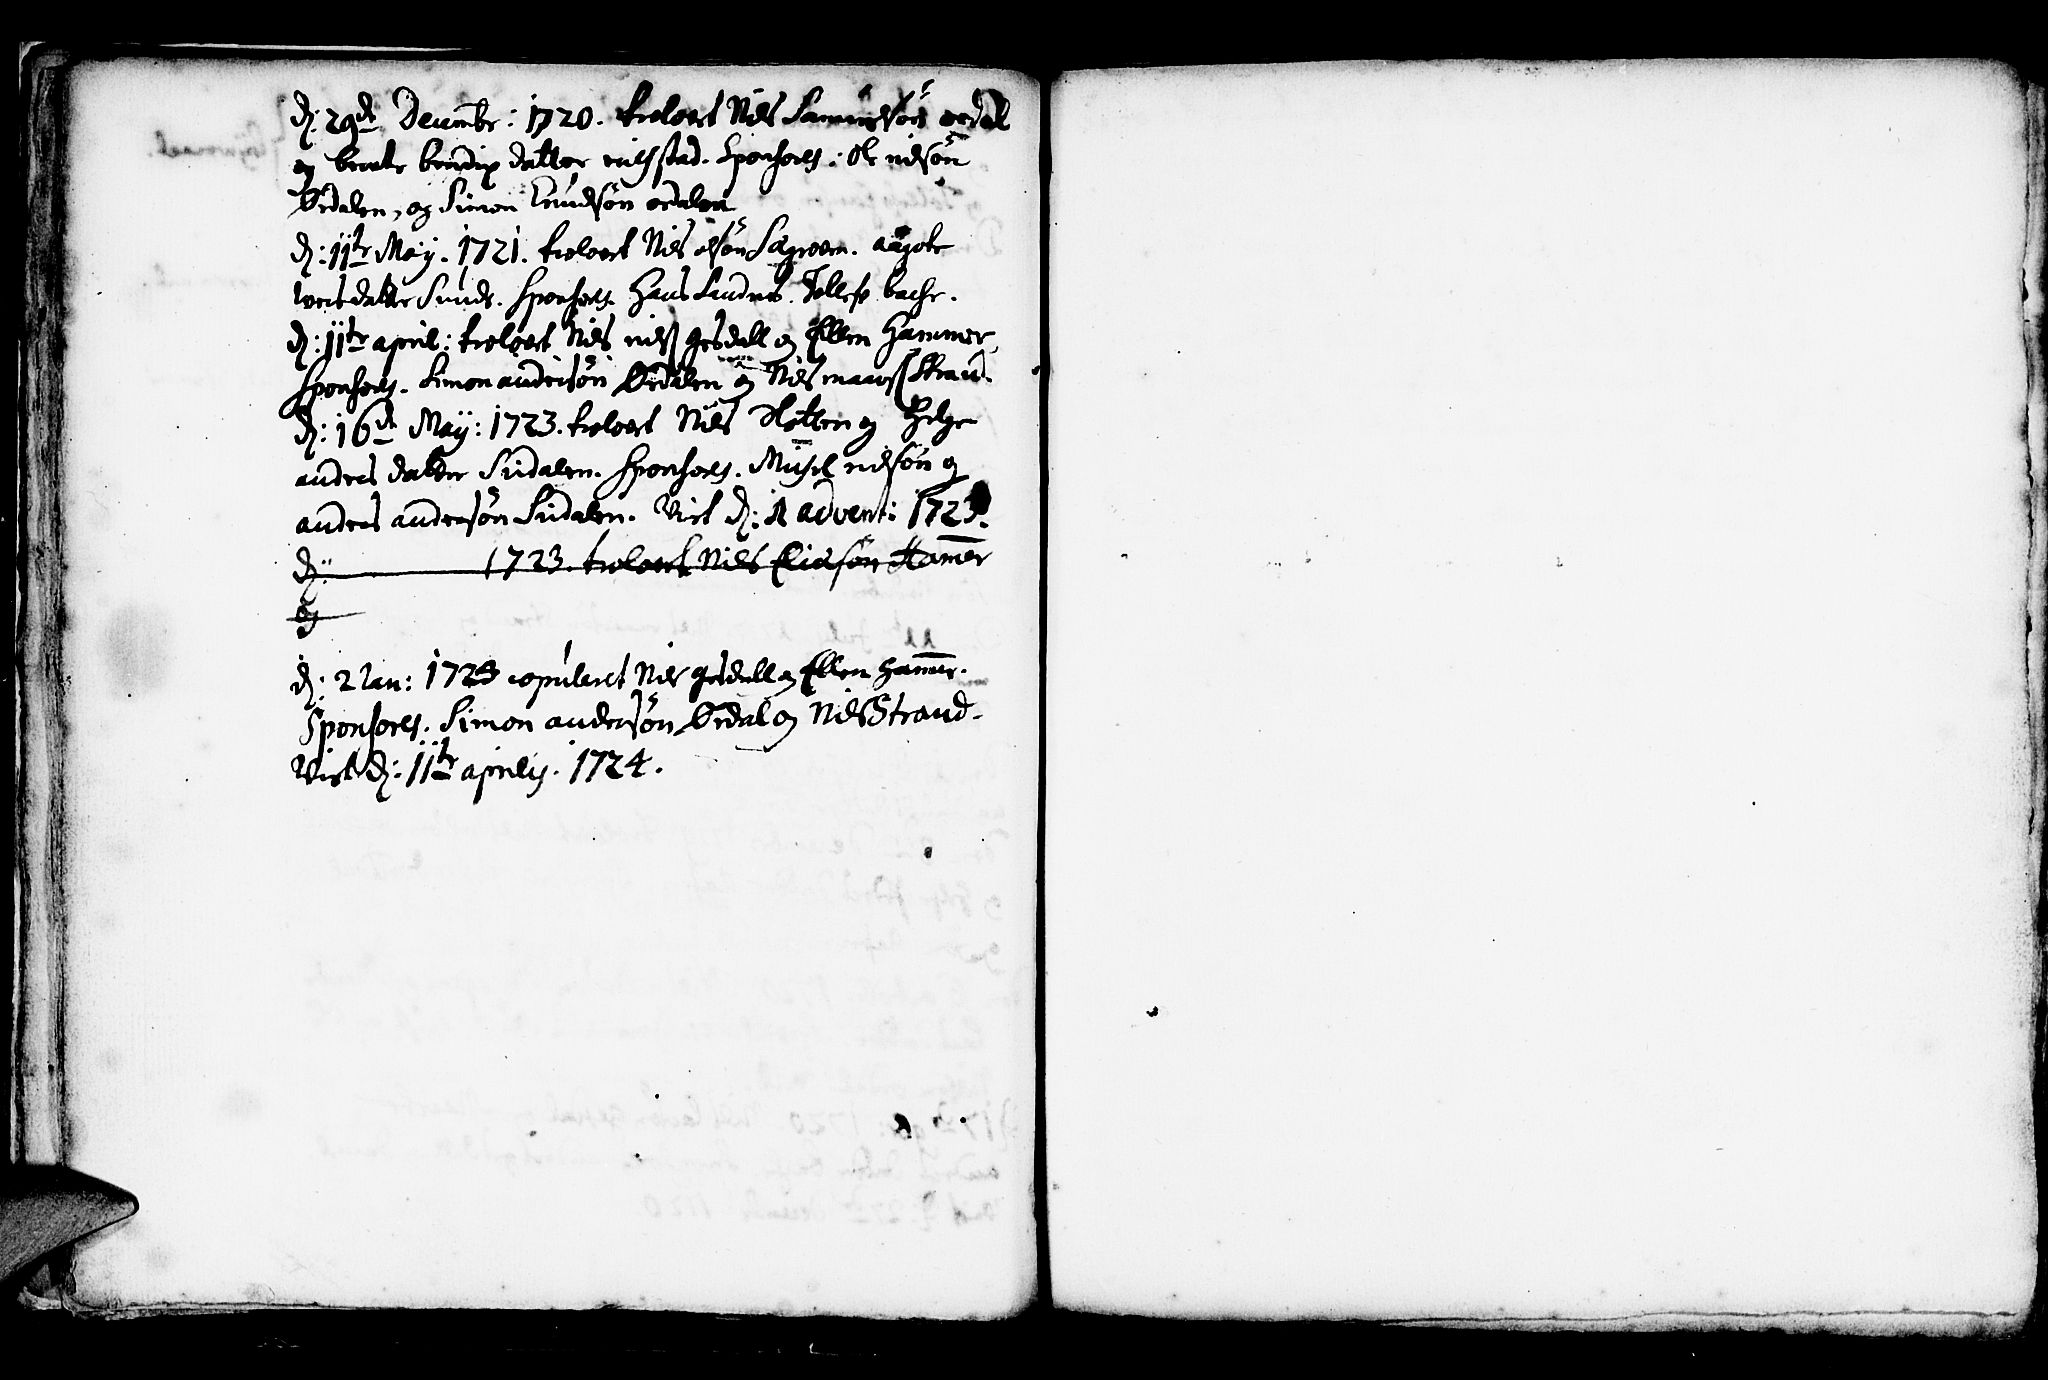 d: 29de Decembr: 1720. troloset Niels Samuelsøn ørdal
og bendix datter sponsores: ole nielsøn
Ørdalen, og Simon Knudsøn ørdalen
d: 11te Maij. 1721. troloset Niels olsøn aagote
datter Sunde. sponsores Hans Tollef bache.
d: 11te april: troloset Niels nielss gesdall og Ellen Hammer,
sponsores. Simon andersøn Ørdalen og Niels Strand.
d: 16de Maij: 1723. troloset Niels Høtten og Helge
anders datter Sudalen. sponsores. nielsøn og
anders andersøn Sudalen. Viet d: advent: 1723.
d: 1723. troloset Niels Eliasøn Hamer
og
d: 2 Jan: 1724 copuleret Niels gesdall og Ellen hamer.
Sponsores. Simon andersøn Ørdal og Niels Strand.
Viet d: 11te aprilis. 1724.